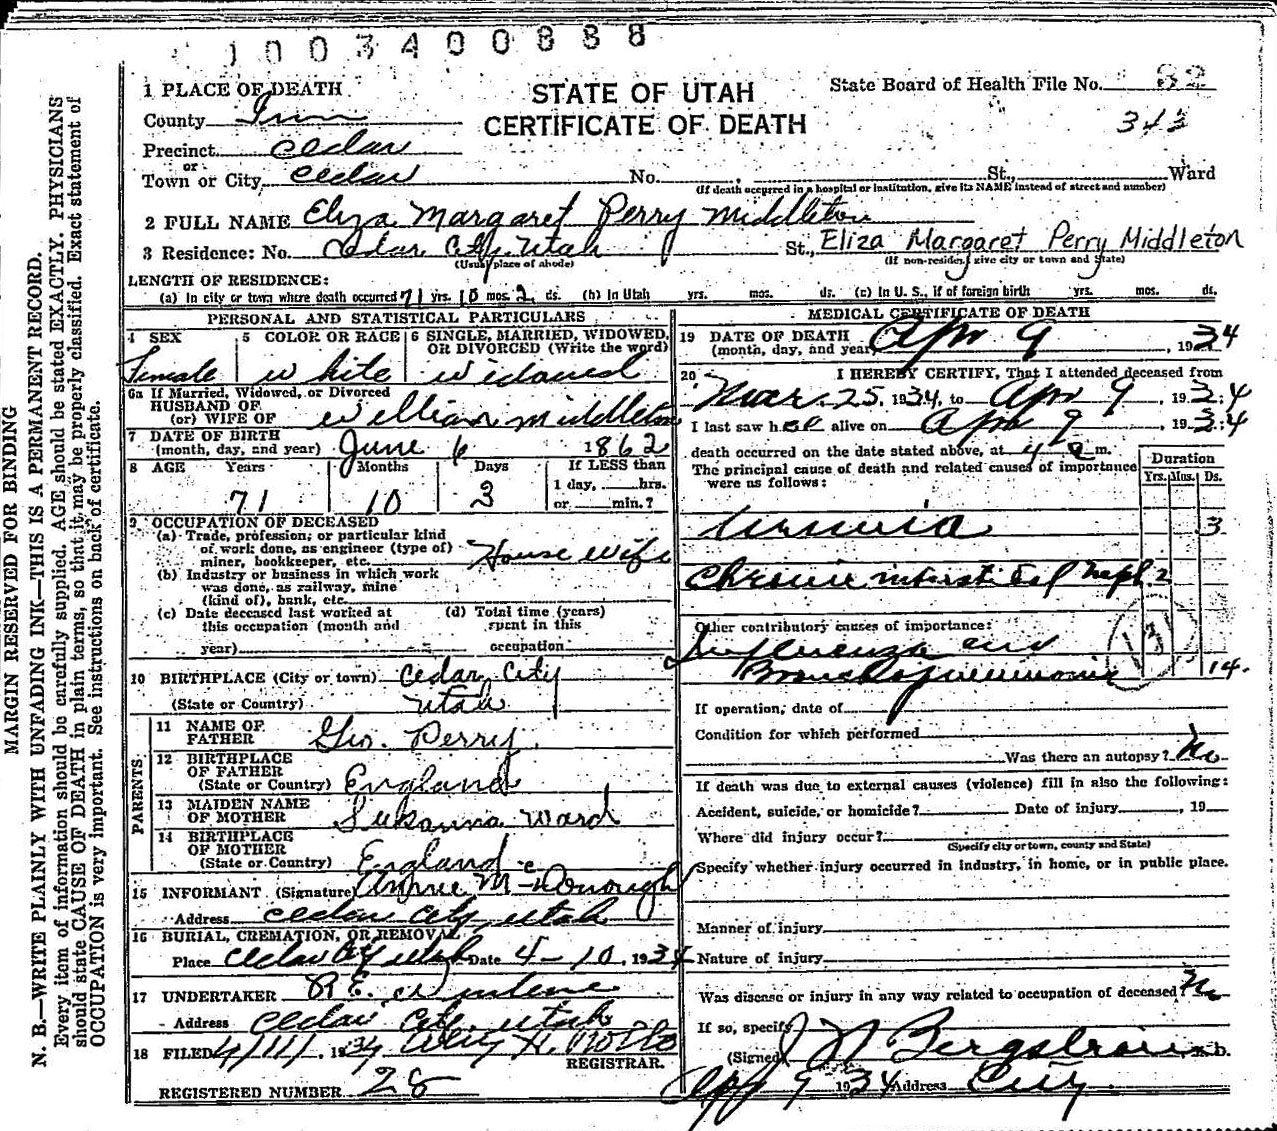 1003400888
1 PLACE OF DEATH
STATE OF UTAH
State Board of Health File No. 82
County Iron
CERTIFICATE OF DEATH
343
Precinct Cedar
or
Town or City Cedar No. St., Ward
(If death occurred in a hospital or institution, give its NAME instead of street and number)
2 FULL NAME Eliza Margaret Perry Middleton
3 Residence: No. Cedar City, Utah St., Eliza Margaret Perry Middleton
(Usual place of abode) (If non-resident give city or town and State)
LENGTH OF RESIDENCE:
(a) In city or town where death occurred 71 yrs. 10 mos. 2 ds. (b) In Utah yrs. mos. ds. (c) In U. S., if of foreign birth yrs. mos. ds.
PERSONAL AND STATISTICAL PARTICULARS
4 SEX 5 COLOR OR RACE 6 SINGLE, MARRIED, WIDOWED, OR DIVORCED (Write the word)
Female white widowed
6a If Married, Widowed, or Divorced
HUSBAND OF
(or) WIFE OF William Middleton
7 DATE OF BIRTH
(month, day, and year) June 6 1862
8 AGE Years Months Days If LESS than
1 day, hrs.
71 10 3 or min.?
9 OCCUPATION OF DECEASED
(a) Trade, profession, or particular kind
of work done, as engineer (type of)
miner, bookkeeper, etc. House wife
(b) Industry or business in which work
was done, as railway, mine
(kind of), bank, etc.
(c) Date deceased last worked at (d) Total time (years)
this occupation (month and spent in this
year) occupation
10 BIRTHPLACE (City or town) Cedar City
(State or Country) Utah
PARENTS
11 NAME OF
FATHER Geo. Perry
12 BIRTHPLACE
OF FATHER
(State or Country) England
13 MAIDEN NAME
OF MOTHER Sukanna Ward
14 BIRTHPLACE
OF MOTHER
(State or Country) England
15 INFORMANT (Signature) Annie McDonough
Address Cedar City, Utah
16 BURIAL, CREMATION, OR REMOVAL
Place Cedar City Utah Date 4-10, 1934
17 UNDERTAKER R.E.
Address Cedar City, Utah
18 FILED 4/11/, 1934
REGISTRAR.
REGISTERED NUMBER 28
MEDICAL CERTIFICATE OF DEATH
19 DATE OF DEATH
(month, day, and year) Apr 9, 1934
20 I HEREBY CERTIFY, That I attended deceased from
Mar. 25, 1934, to Apr 9, 1934
I last saw her alive on Apr 9, 1934
death occurred on the date stated above, at 4 a m.
The principal cause of death and related causes of importance
were as follows:
Duration
Yrs. Mos. Ds.
Uremia 3
Chronic interstitial neph. 2
Other contributory causes of importance:
131
Influenza and
Bronchopneumonia 14.
If operation, date of
Condition for which performed
Was there an autopsy? No
If death was due to external causes (violence) fill in also the following:
Accident, suicide, or homicide? Date of injury, 19
Where did injury occur?
(Specify city or town, county and State)
Specify whether injury occurred in industry, in home, or in public place.
Manner of injury
Nature of injury
Was disease or injury in any way related to occupation of deceased? No
If so, specify
(Signed) J N Bergstrom M. D.
Apr 9 1934 Address City
MARGIN RESERVED FOR BINDING
N. B.—WRITE PLAINLY WITH UNFADING INK—THIS IS A PERMANENT RECORD.
Every item of information should be carefully supplied. AGE should be stated EXACTLY. PHYSICIANS
should state CAUSE OF DEATH in plain terms, so that it may be properly classified. Exact statement of
OCCUPATION is very important. See instructions on back of certificate.